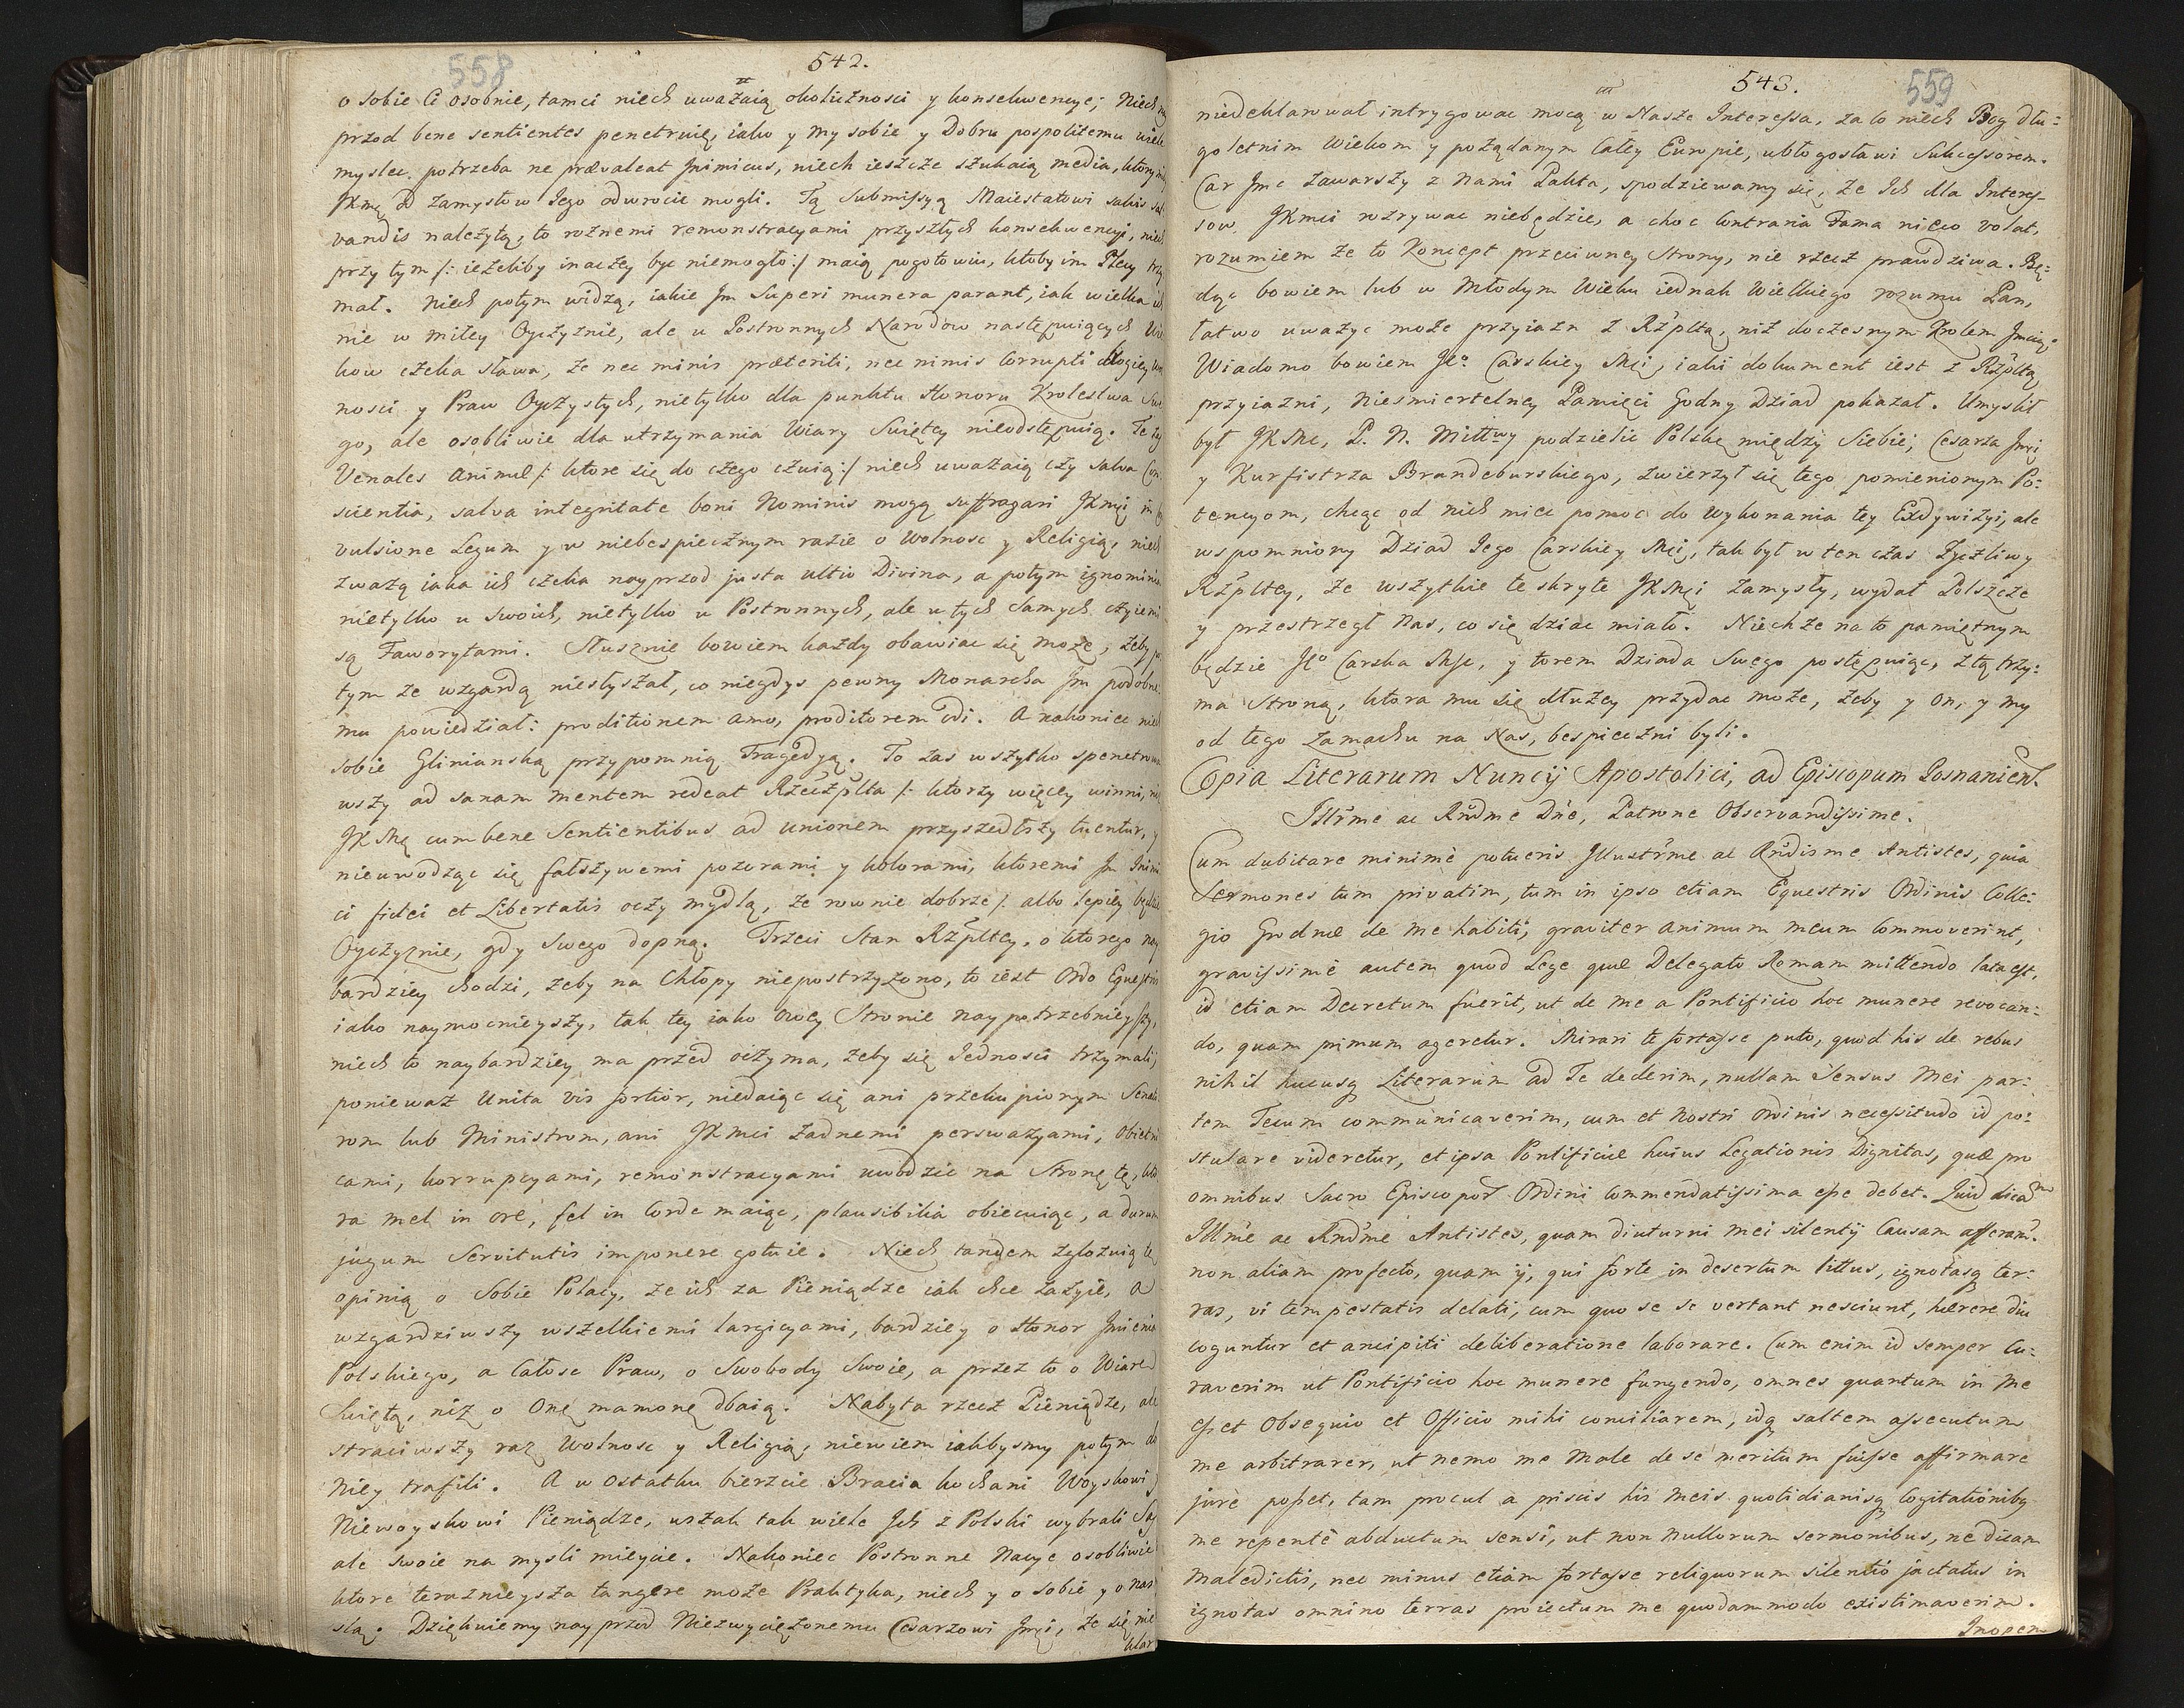 558
542.
o sobie Ci osobnie, tamci niech uważaią okolicznosci y konsekwencye; Niech
przod bene sentientes penetruię, iako y my sobie y Dobru pospolitemu wiele
myslec. potrzeba ne prævaleat Inimicus, niech ieszcze szukaią media, ktory
JKmę od zamysłow Iego odwrocić mogli. Tą Submissyą Maiestatowi salvis sal
vandis należytą, to rożnemi remonstracyami przyszłych konsekwencyi, niech
przy tym /: ieżeliby inaczey byc niemogło :/ maią pogotowiu, ktoby im Plecy trzy
mał. Niech potym widzą, iakie Im Superi munera parant, iak wielka ich
nie w miłey Oyczyznie, ale u Postronnych Narodow następuiących Wie
kow czeka sława, że nec minis præteriti, nec nimis Corrupti
nosci y Praw Oyczystych, nietylko dla punktu Honoru Krolestwa Swe
go, ale osobliwie dla utrzymania Wiary Swiętey nieodstępuią. Te
Venales Animæ /: ktore się do czego czuią :/ niech uważaią czy salva Con
scientia, salva integritate boni Nominis mogą suffragari JKmci in
vulsione Legum y w niebespiecznym razie o Wolnosc y Religią, niech
zważą iaka ich czeka nayprzod justa ultio Divina, a potym ignominia
nietylko u Swoich, nietylko u Postronnych, ale u tych samych, czyiemi
są Faworytami. Słusznie bowiem każdy obawiac się może, żeby po
tym ze wzgardą niesłyszał, co niegdys pewny Monarcha Im podobne
mu powiedział: proditionem amo, proditorem odi. A nakoniec niech
sobie Glinianską przypomnią Tragedyą. To zas wszytko spenetrowa
wszy ad sanam mentem redeat Rzeczplta /: ktorzy więcey winni,
JKMę cum bene Sentientibus ad unionem przyszedłszy tuentur, y
nieuwodząc się fałszywemi pozorami y kolorami, ktoremi Im Inimi
ci fidei et Libertatis oczy mydlą, że rownie dobrze /: albo lepiey będzie
Oyczyznie, gdy Swego dopną. Trzeci Stan Rzpltey, o ktorego nay
bardziey chodzi, zeby na Chłopy niepostrzyżono, to iest Ordo Equestris
iako naymocnieyszy, tak tey iako owey Stronie naypotrzebnieyszy,
niech to naybardziey ma przed oczyma, żeby się Jednosci trzymali,
poniewaz Unita vis fortior, niedaiąc się ani przekupionym Senato
rom lub Ministrom, ani JKmci żadnemi perswazyami, Obietni
cami, korrupcyami, remonstracyami uwodzić na Stronę tę, kto
ra mel in ore, fel in Corde maiąc, plausibilia obiecuiąc, a durum
jugum Servitutis imponere gotuie. Niech tandem
opinią o Sobie Polacy, że ich za Pieniądze iak chce zażyie, a
wzgardziwszy wszelkiemi largicyami, bardziey o Honor Imienia
Polskiego, a Całosc Praw, o Swobody Swoie, a przez to o Wiarę
Swiętą, niż o Onę mamonę dbaią. Nabyta rzecz Pieniądze, ale
straciwszy raz Wolnosc y Religią, niewiem iakbysmy potym do
Niey trafili. A w ostatku bierzcie Bracia kochani Woyskowi y
Niewoyskowi Pieniądze, wszak tak wiele Ich z Polski wybrali
ale swoie na mysli mieycie. Nakoniec Postronne Nacye osobliwie
ktore teraznieysza tangere może Praktyka, niech y o sobie y o nas
slą. Dziękuiemy nayprzod Niezwyciężonemu Cesarzowi Jmci, że się nie
klar
559
543.
niedeklarował intrygowac mocą w Nasze Interessa, za co niech Bog dłu=
goletnim Wiekom y pożądanym Całey Europie, ubłogosławi Sukcessorem.
Car Jmc zawarszy z Nami Pakta, spodziewamy się, że Ich dla Interes=
sow. JKmci rozrywac niebędzie, a choc Contraria Fama nieco volat,
rozumiem że to Koncept przeciwney Strony, nie rzecz prawdziwa. Bę=
dąc bowiem lub w Młodym Wieku iednak Wielkiego rozumu Pan,
łatwo uważyc może przyiazn z Rzpltą, niż doczesnym Krolem Jmcią.
Wiadomo bowiem Jeo Carskiey Mci, iaki dokument iest z Rzpltą
przyiazni, Niesmiertelney Pamięci Godny Dziad pokazał. Umyslił
był JKMc, P. N. Miłłwy podzielic Polskę między Siebie, Cesarza Jmci
y Kurfistrza Brandeburskiego, zwierzył się tego pomienionym Po=
tencyom, chcąc od nich miec pomoc do wykonania tey Exdywizyi, ale
wspomniony Dziad Iego Carskiey Mci, tak był w ten czas Życzliwy
Rzpltey, że wszytkie te skryte JKMci zamysły, wydał Polszcze
y przestrzegł Nas, co się dziac miało. Niechże na to pamiętnym
będzie Jeo Carska Mc, y torem Dziada Swego postępuiąc, z tą trzy=
ma Stroną, ktora mu się dłużey przydac może, żeby y on, y my
od tego zamachu na Nas, bespieczni byli.
Copia Literarum Nuncij Apostolici, ad Episcopum Posnanien.
Illrme ac Rndme Dne, Patrone Observandissime.
Cum dubitare minimè potueris Illustrme ac Rndisme Antistes, quia
Sermones tum privatim, tum in ipso etiam Equestris Ordinis Colle=
gio Grodnæ de me habiti, graviter animum meum Commoverint,
gravissimè autem quod Lege quæ Delegato Romam mittendo lata est,
id etiam Decretum fuerit, ut de me a Pontificio hoc munere revocan=
do, quam primum ageretur. Mirari te fortasse puto, quod his de rebus
nihil hucusq Literarum ad Te dederim, nullam Sensus Mei par=
tem Tecum communicaverim, cum et Nostri Ordinis necessitudo id po=
stulare videretur, et ipsa Pontificiæ huius Legationis Dignitas, quæ pro
omnibus Sacro Episcopor Ordini Commendatissima esse debet. Quid dicam
Illme ac Rndme Antistes, quam diuturni mei silentij Causam afferam.
non aliam profecto, quam ij, qui forte in desertum littus, ignotasq ter=
ras, vi tempestatis delati, cum quo se se vertant nesciunt, hærere diu
coguntur et ancipiti deliberatione laborare. Cum enim id semper Cu=
raverim ut Pontificio hoc munere fungendo, omnes quantum in me
esset Obsequio et Officio mihi conciliarem, idq saltem assecutum
me arbitrarer, ut nemo me Male de se meritum fuisse affirmare
jure posset, tam procul a priscis his Meis quotidianisq Cogitationibq
me repentè abductum sensi, ut non Nullorum sermonibus, ne dicam
Maledictis, nec minus etiam fortasse reliquorum silentio jactatus in
ignotas omnino terras proiectum me quodammodo existimaverim.
Inopem